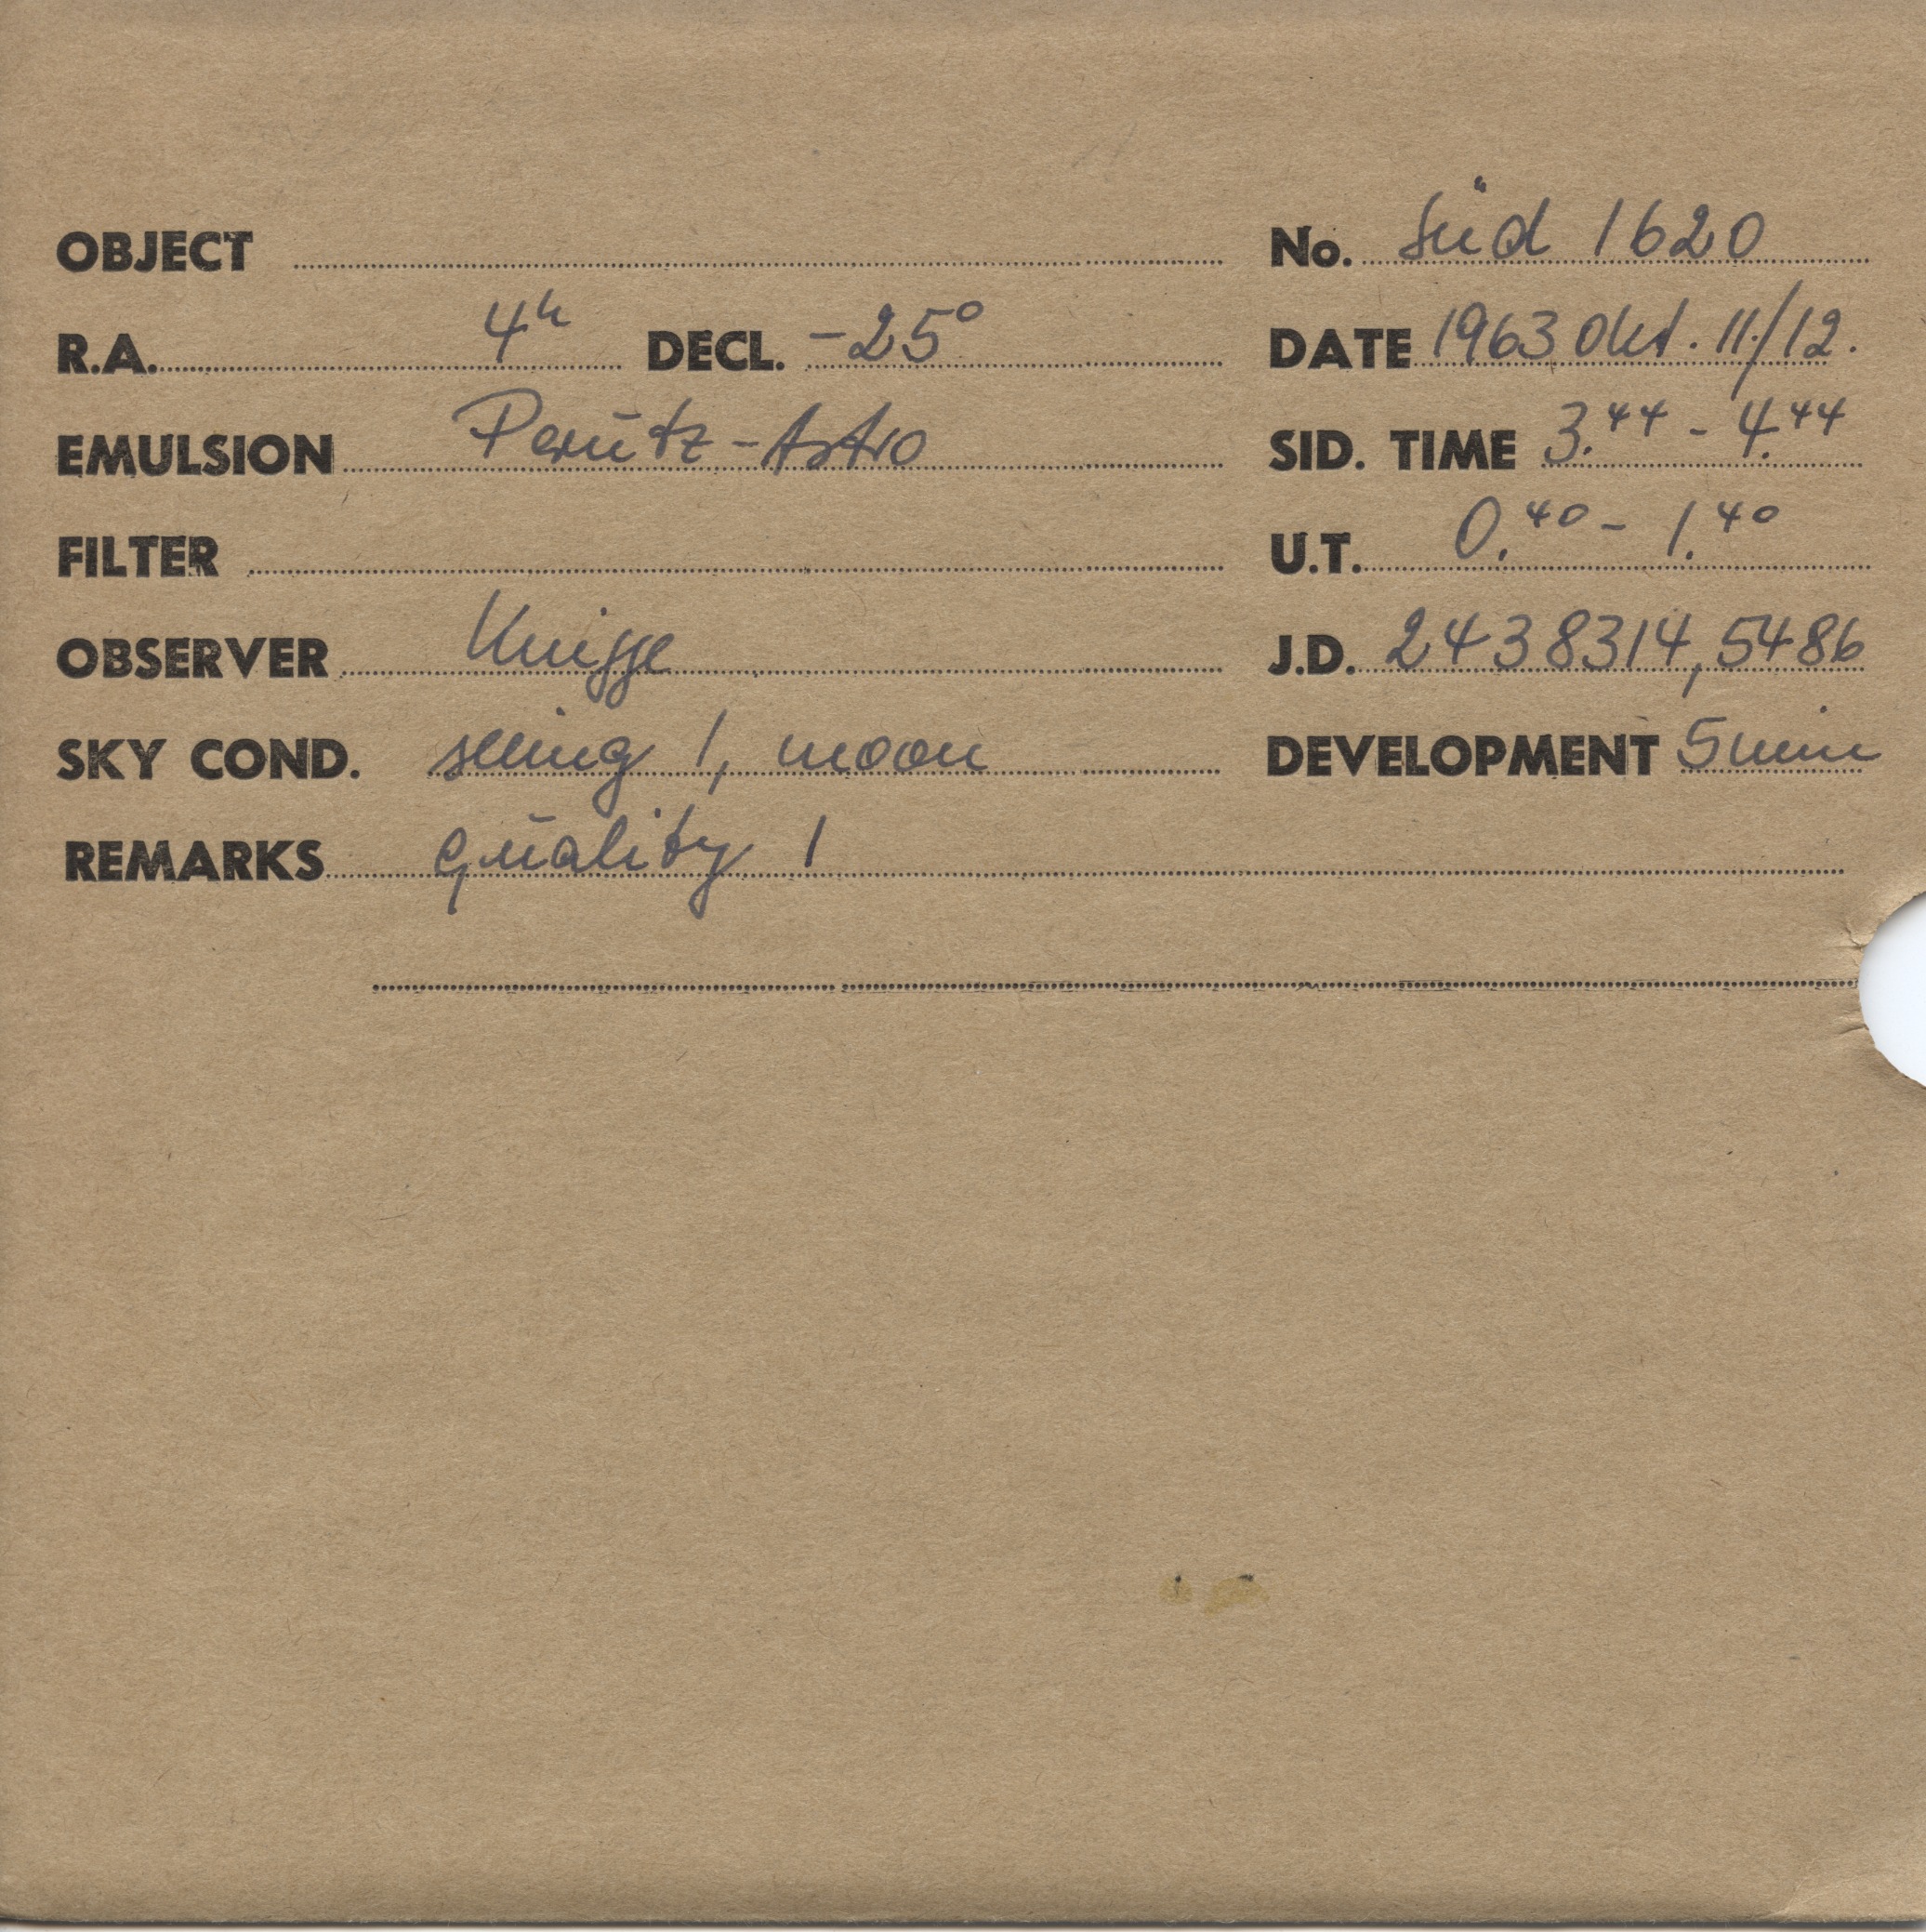 OBJECT No. Süd 1620
R.A. 4h DECL. -25° DATE 1963 Okt. 11./12.
EMULSION Perutz-Astro SID. TIME 3.44 - 4.44
FILTER U.T. 0.40 - 1.40
OBSERVER Knigge J.D. 2438314,5486
SKY COND. seeing 1, moon DEVELOPMENT 5 min
REMARKS quality 1